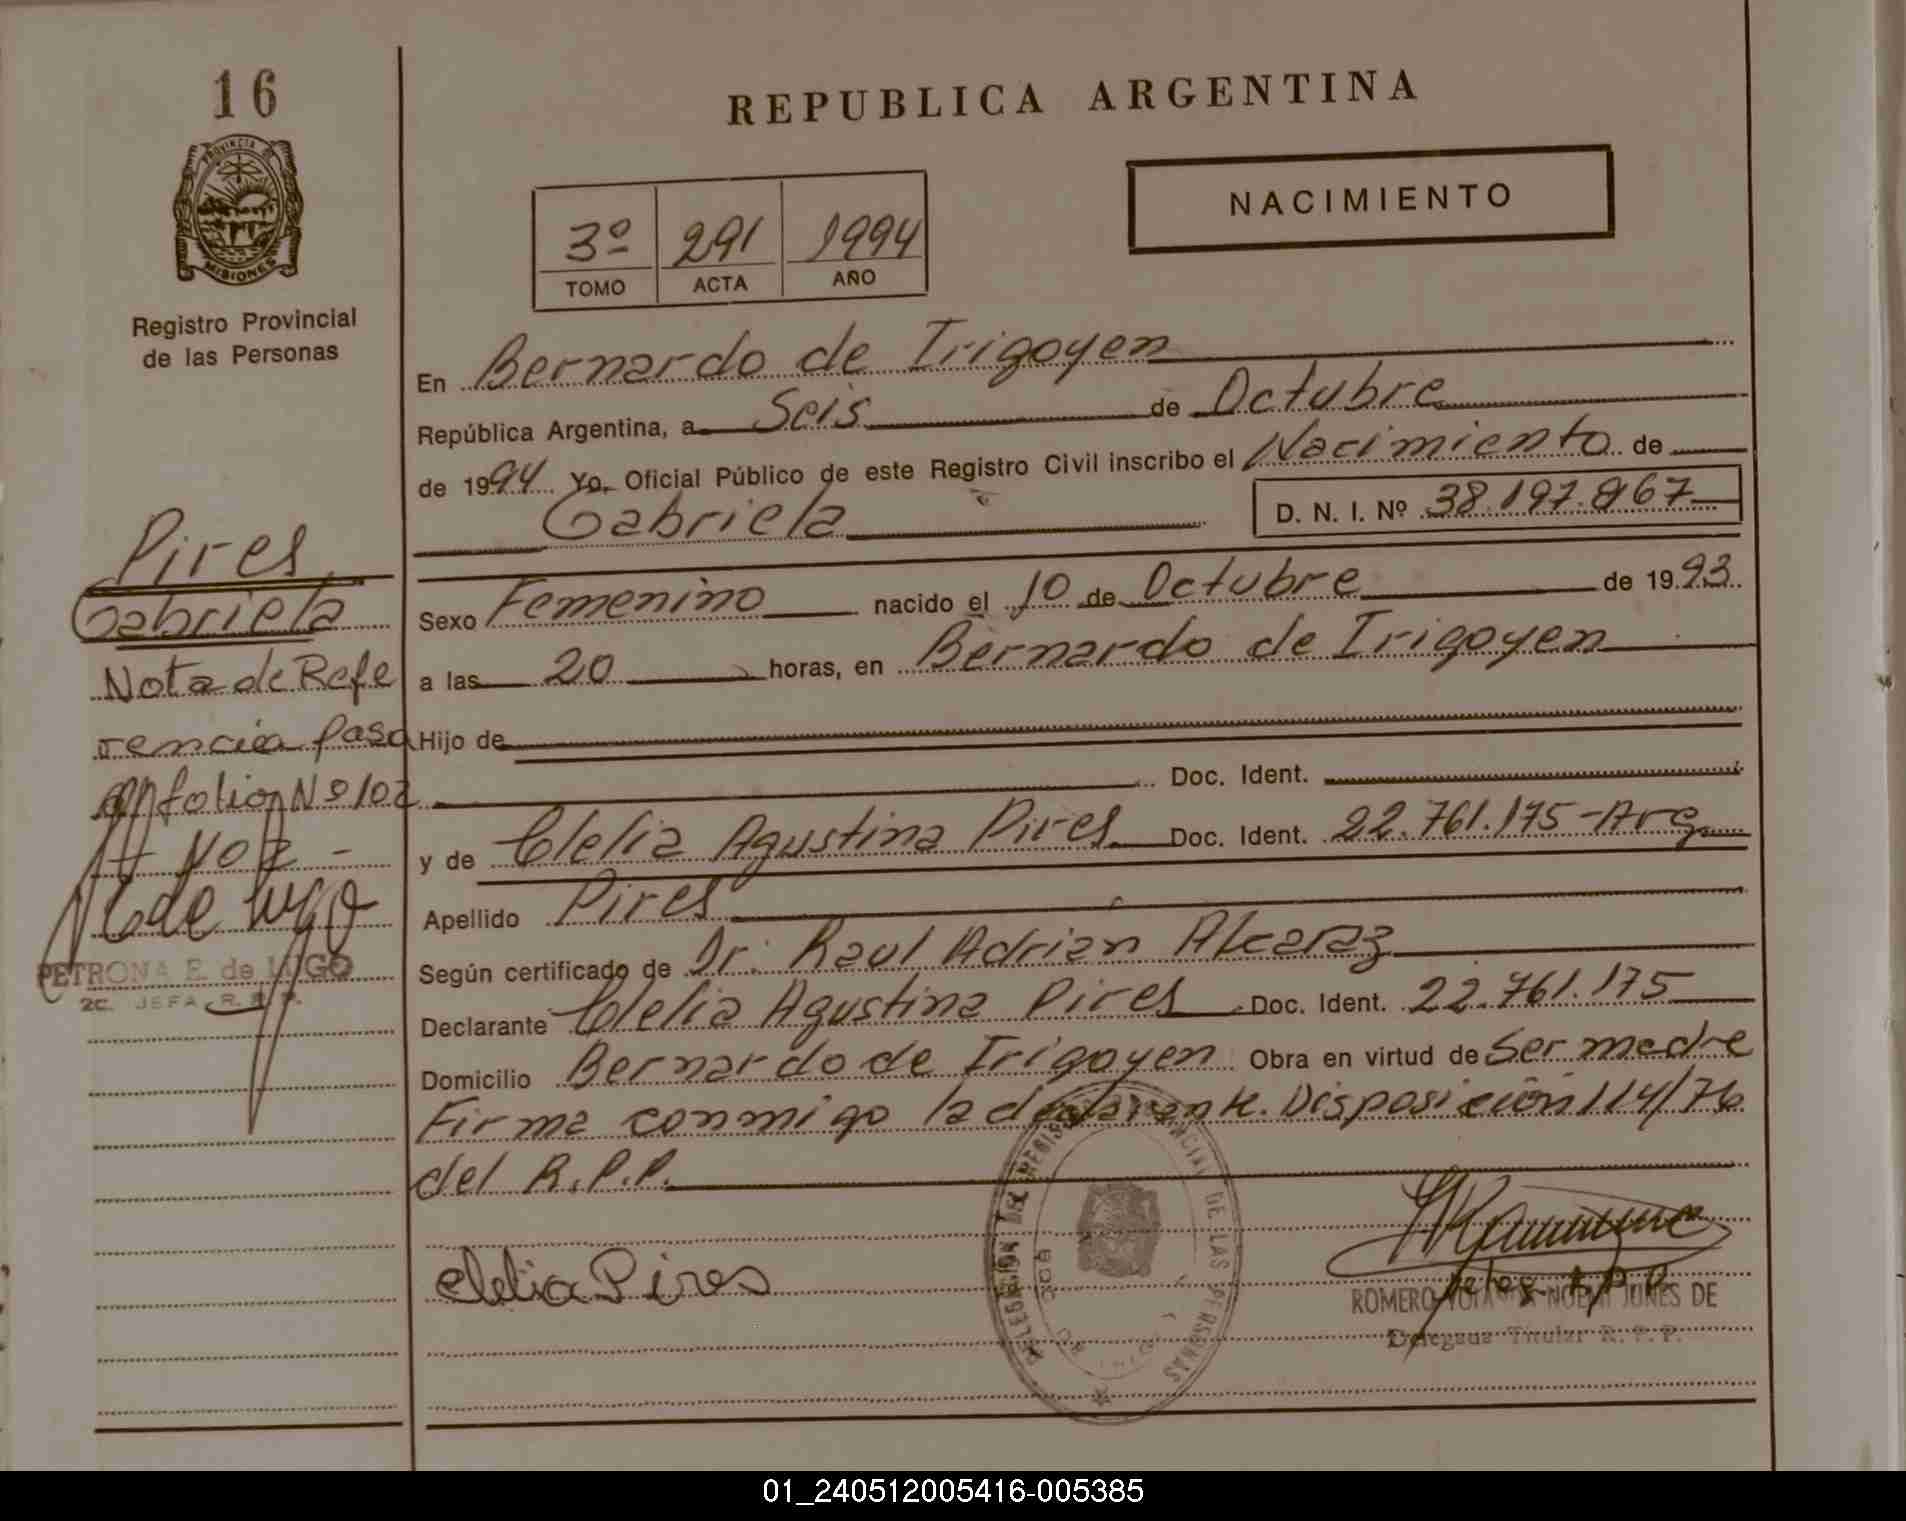 16
PROVINCIA DE
MISIONES
Registro Provincial
de las Personas
REPUBLICA ARGENTINA
NACIMIENTO
3º 291 1994
TOMO ACTA AÑO
En Bernardo de Irigoyen
República Argentina, a Seis de Octubre
de 1994 Yo, Oficial Público de este Registro Civil inscribo el Nacimiento de
Gabriela
D. N. I. Nº 38.197.867
Sexo Femenino nacido el 10 de Octubre de 1993
a las 20 horas, en Bernardo de Irigoyen
Hijo de
Doc. Ident.
y de Clelia Agustina Pires Doc. Ident. 22.761.175-Arg.
Apellido Pires
Según certificado de Dr. Raul Adrián Alcaraz
Declarante Clelia Agustina Pires Doc. Ident. 22.761.175
Domicilio Bernardo de Irigoyen Obra en virtud de Ser madre
Firma conmigo la declarante. Disposición 114/76
del R.P.P.
Clelia Pires
DELEGACION DEL REGISTRO PROVINCIAL DE LAS PERSONAS
ROMERO YOLANDA NOEMI JUNES DE
Delegada Titular R. P. P.
Pires
Gabriela
Nota de Refe
rencia pasa
en folio Nº 102
PETRONA E. de LUGO
2C. JEFA R. P. P.
01_240512005416-005385